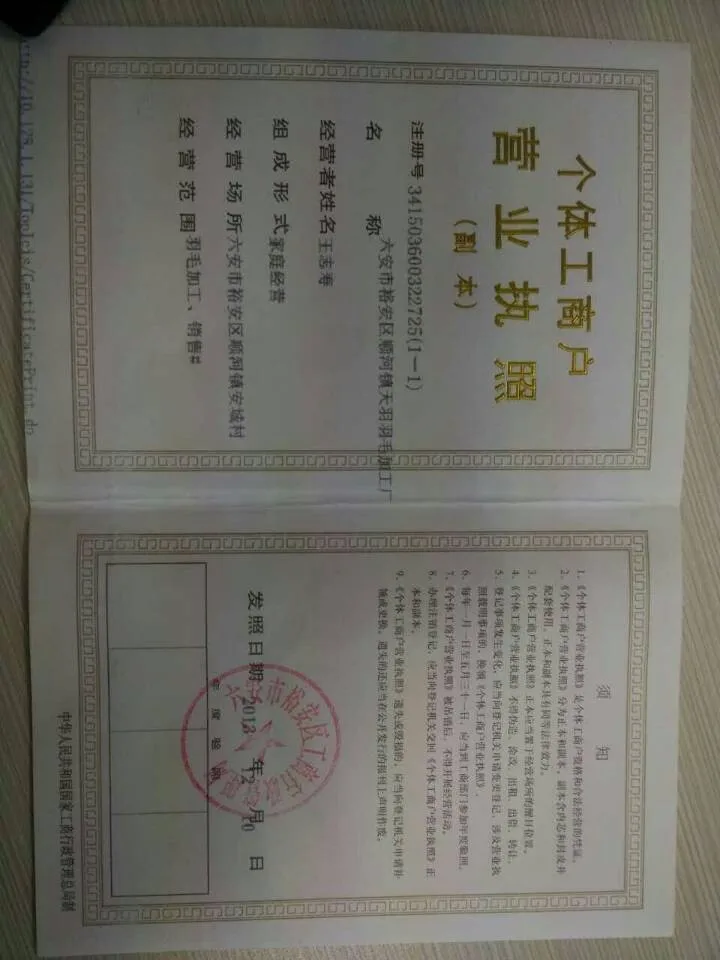 个体工商户
营业执照
(副本)
注册号 341503600322725(1-1)
名称 六安市裕安区顺河镇天羽羽毛加工厂
经营者姓名 王志寿
组成形式 家庭经营
经营场所 六安市裕安区顺河镇安城村
经营范围 羽毛加工、销售#
须知
1、《个体工商户营业执照》是个体工商户资格和合法经营的凭证。
2、《个体工商户营业执照》分为正本和副本，副本含内芯和封皮并
配套使用，正本和副本具有同等法律效力。
3、《个体工商户营业执照》正本应当置于经营场所的醒目位置。
4、《个体工商户营业执照》不得伪造、涂改、出租、出借、转让。
5、登记事项发生变化，应当向登记机关申请变更登记，涉及营业执
照载明事项的，换领《个体工商户营业执照》。
6、每年一月一日至五月三十一日，应当到工商部门参加年度验照。
7、《个体工商户营业执照》被吊销后，不得开展经营活动。
8、办理注销登记，应当向登记机关交回《个体工商户营业执照》正
本和副本。
9、《个体工商户营业执照》遗失或毁损的，应当向登记机关申请补
领或更换。遗失的还应当在公开发行的报刊上声明作废。
发照日期 2013 年 2 月 20 日
年度验照
中华人民共和国国家工商行政管理总局制